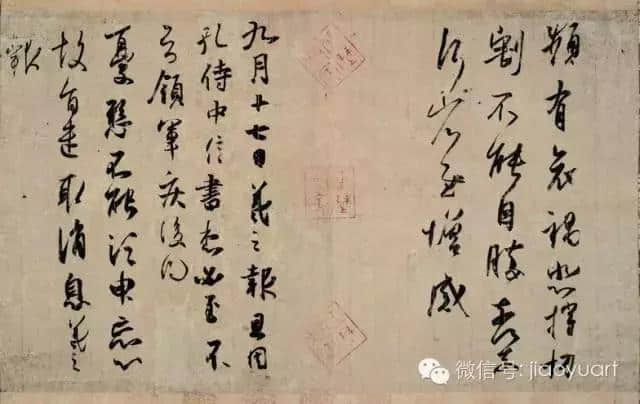 頻有哀禍悲摧切
割不能自勝奈何
奈何省慰增感
九月十七日羲之報且因
孔侍中信書想必至不
知領軍疾後問
憂懸不能須臾忘心
故旨遣取消息羲之
報
微信号: jiaoyuart